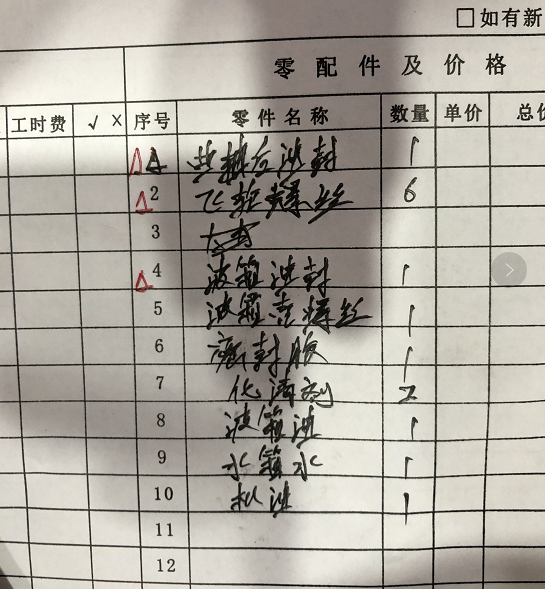 □如有新
零配件及价格
工时费 √ × 序号 零件名称 数量 单价 总价
△ 1 曲轴后油封 1
△ 2 飞轮螺丝 6
3
△ 4 波箱油封 1
5 波箱壳螺丝 1
6 密封胶 1
7 化清剂 2
8 波箱油 1
9 水箱水 1
10 机油 1
11
12